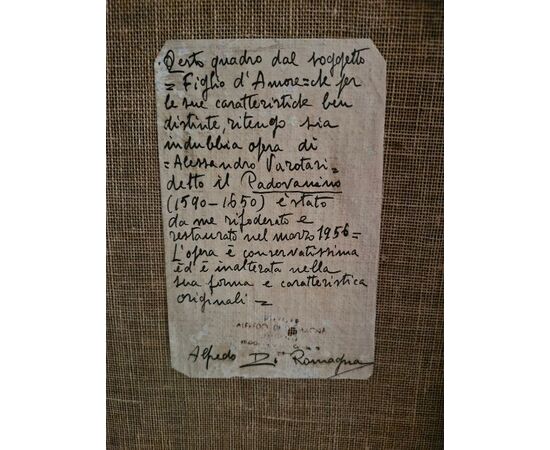 Questo quadro dal soggetto
= Figlio d'Amore = che per
le sue caratteristiche ben
distinte, ritengo sia
indubbia opera di
= Alessandro Varotari =
detto il Padovanino
(1590-1650) è stato
da me rifoderato e
restaurato nel marzo 1956 =
L'opera è conservatissima
ed è inalterata nella
sua forma e caratteristica
originali =
ALFREDO DI
Alfredo Di Romagna